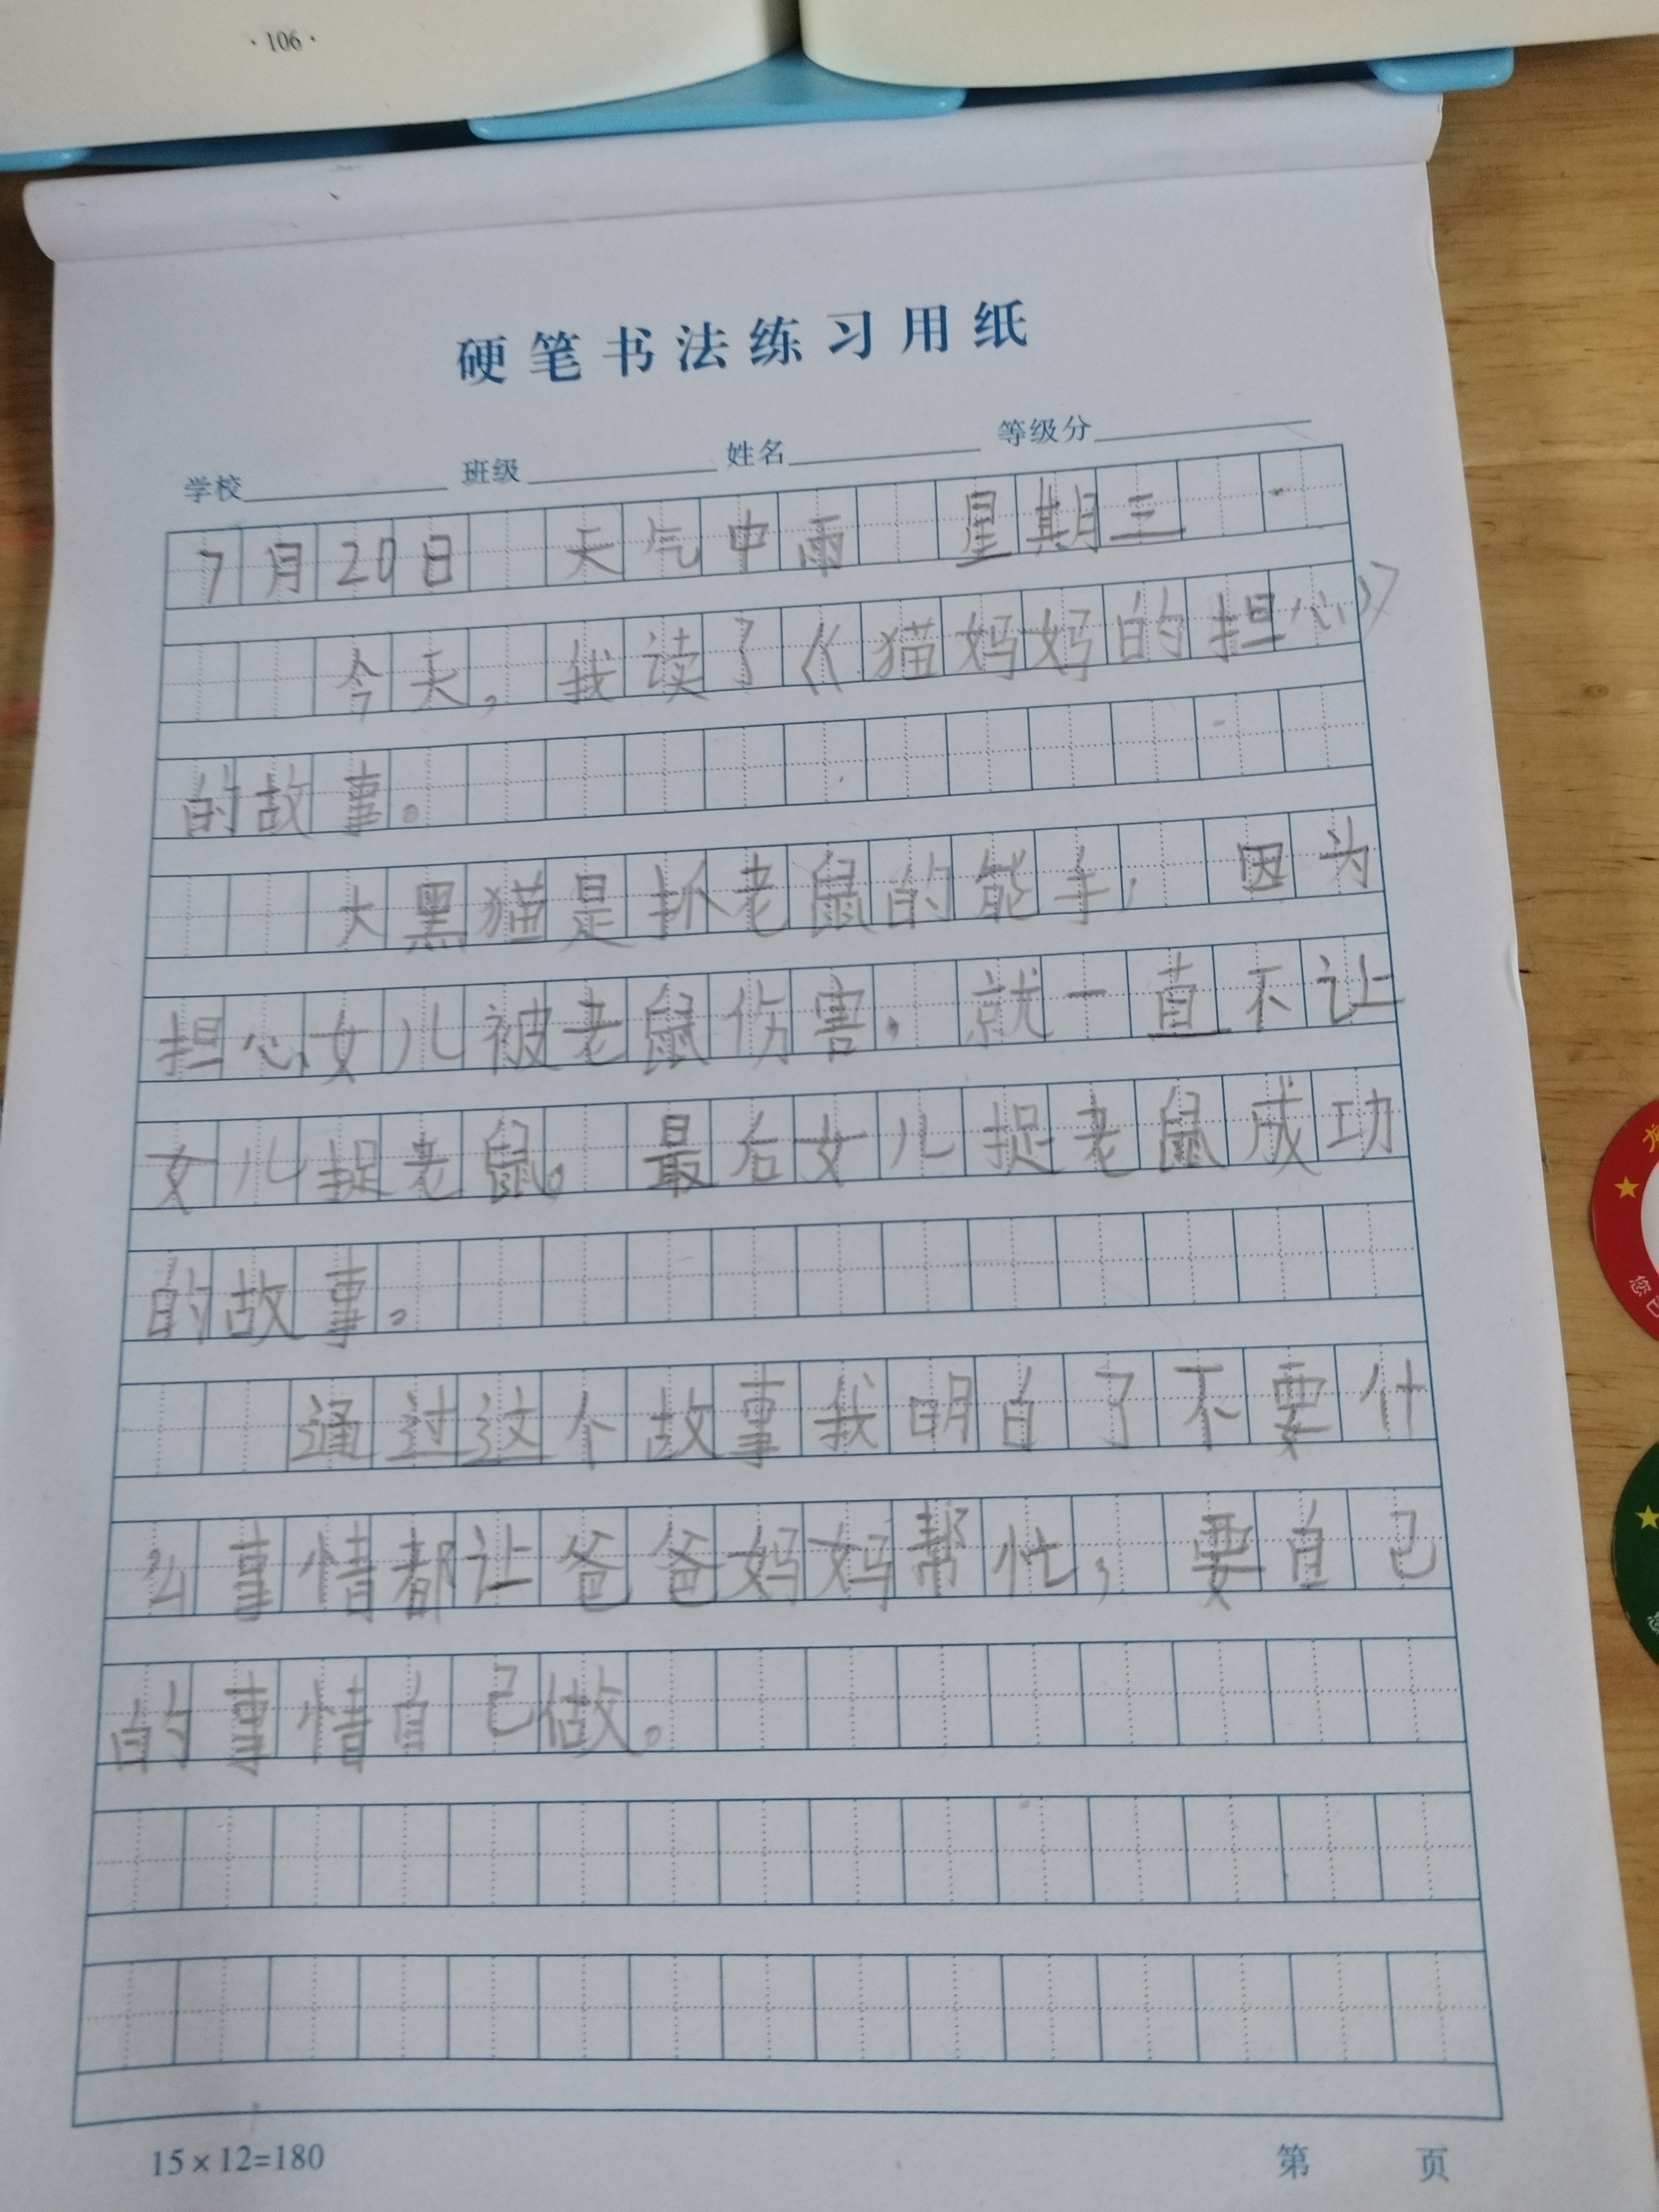 ·106·
硬笔书法练习用纸
学校 班级 姓名 等级分
7月20日 天气中雨 星期三
今天，我读了《猫妈妈的担心》
的故事。
大黑猫是抓老鼠的能手， 因为
担心女儿被老鼠伤害， 就一直不让
女儿捉老鼠。 最后女儿捉老鼠成功
的故事。
通过这个故事我明白了不要什
么事情都让爸爸妈妈帮忙， 要自己
的事情自己做。
15×12=180
第 页